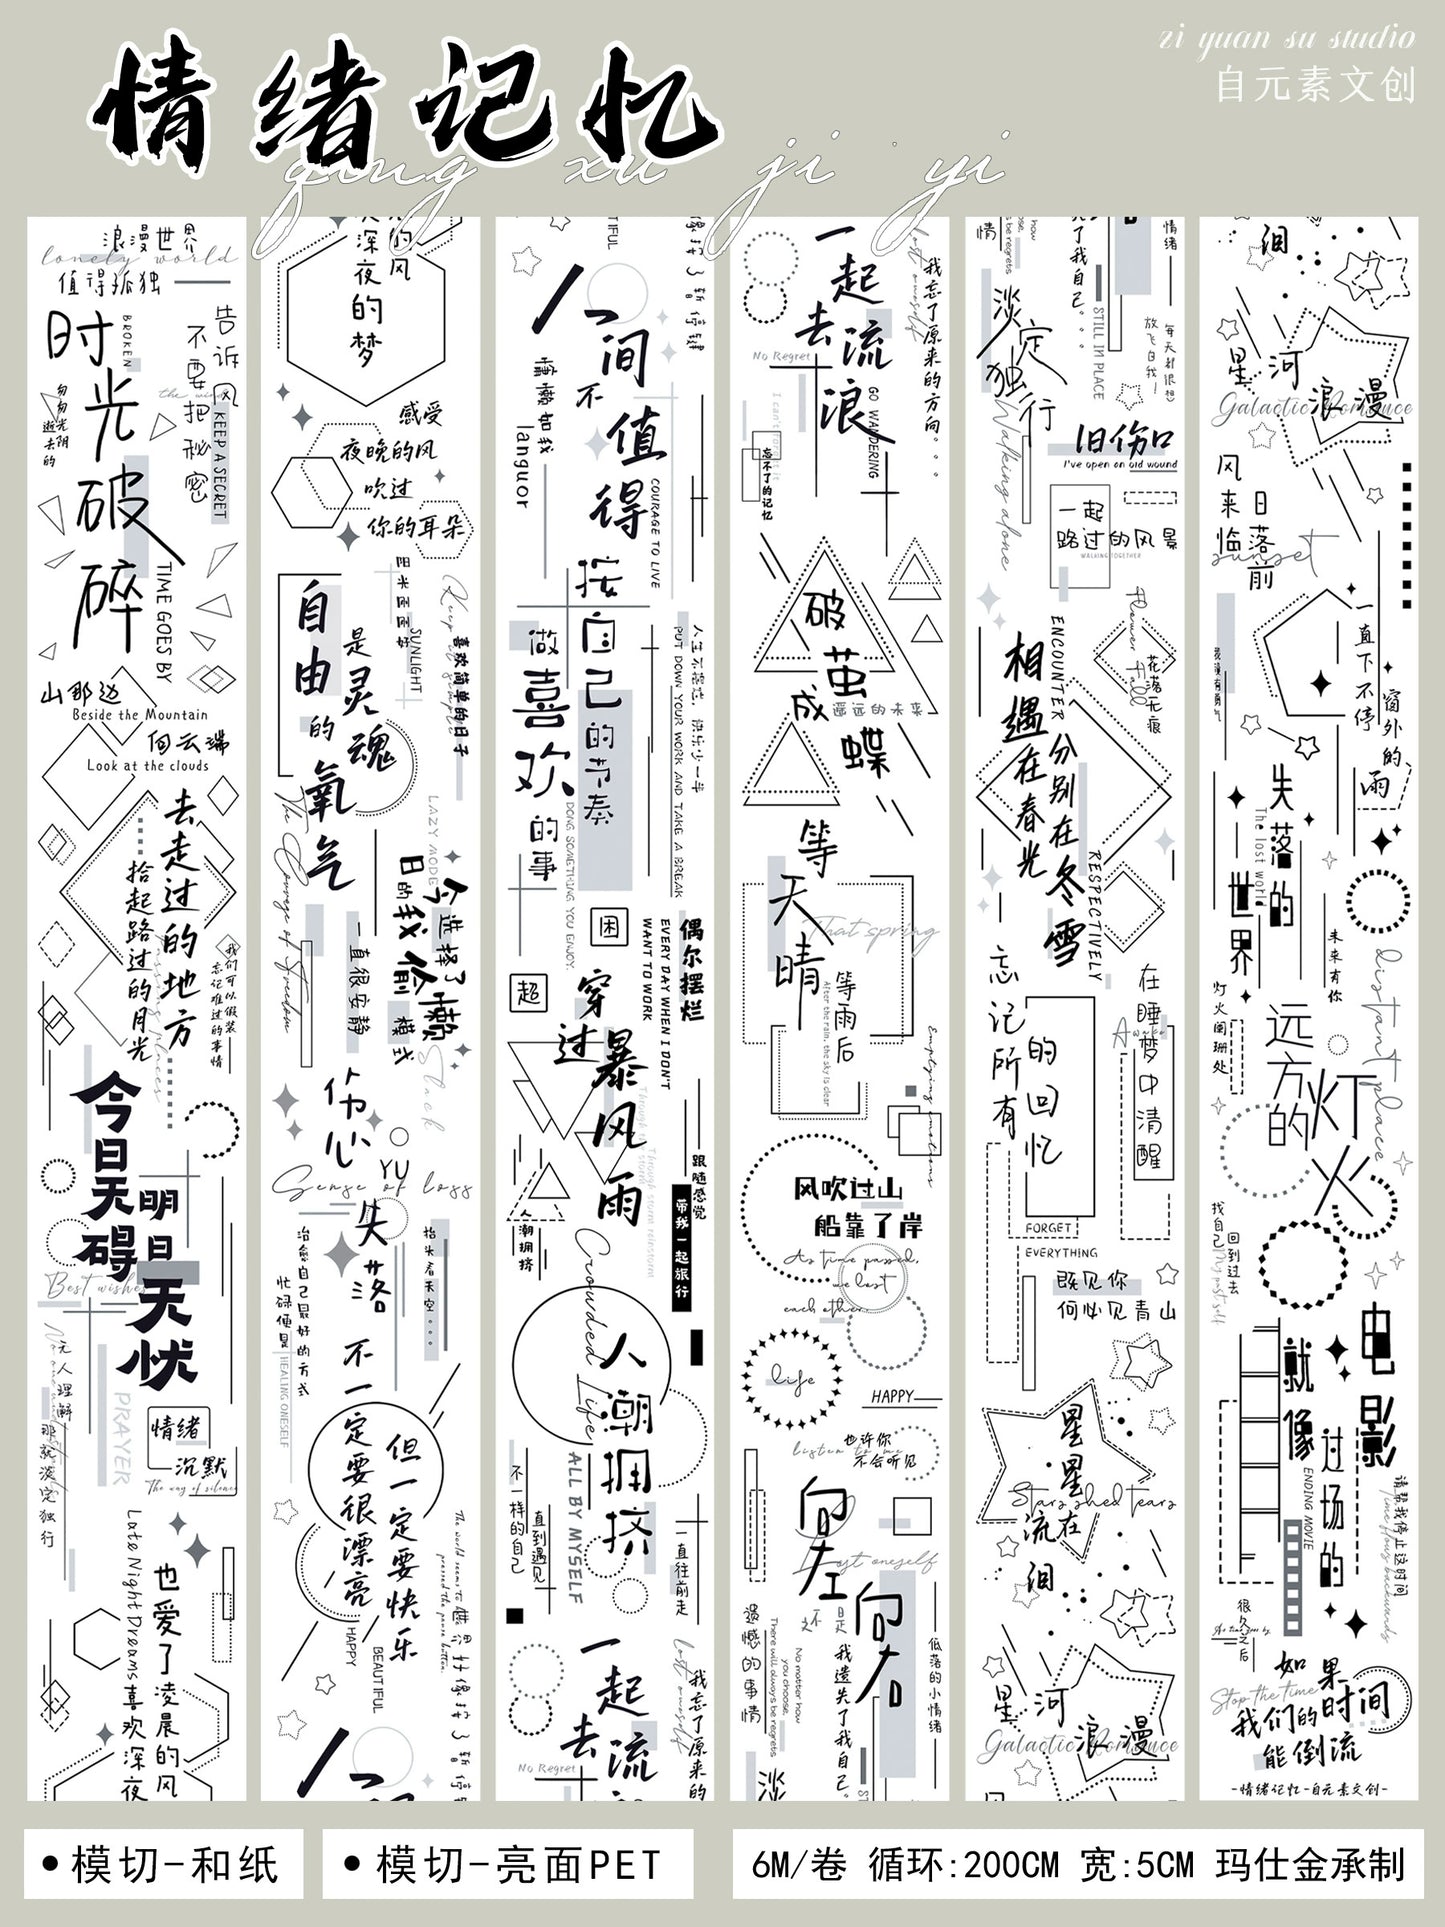 zi yuan su studio
自元素文创
情绪记忆
qing xu ji yi
浪漫世界
lonely world
值得孤独
时光破碎
BROKEN
告诉风
不要把秘密
KEEP A SECRET
匆匆光阴
逝去的
TIME GOES BY
山那边
Beside the Mountain
向云端
Look at the clouds
去走过的地方
拾起路过的月光
我们可以假装
忘记难过的事情
今日天碍
明日无忧
Best wishes
无人理解
那就淡定独行
PRAYER
情绪
沉默
The way of silence
Late Night Dreams
也爱了凌晨的风
喜欢深夜
的风
深夜的梦
感受
夜晚的风
吹过
你的耳朵
自由的氧气
是灵魂
阳光正好
SUNLIGHT
Keep it simple
喜欢简单的日子
The Courage of Freedom
LAZY MODE
今日的我
选择了偷懒
模式
一直很安静
Slack
伤心
YU
Sense of loss
失落
治愈自己最好的方式
忙碌便是
HEALING ONESELF
抬头看天空....
不一定要很漂亮
但一定要快乐
HAPPY
BEAUTIFUL
TIFUL
人间不值得
慵懒如我
languor
COURAGE TO LIVE
按自己的节奏
做喜欢的事
DOING SOMETHING YOU ENJOY.
PUT DOWN YOUR WORK AND TAKE A BREAK
困
超
偶尔摆烂
EVERY DAY WHEN I DON'T
WANT TO WORK
穿过暴风雨
跟随感觉
带我一起旅行
潮拥挤
Crowded Life
人潮拥挤
ALL BY MYSELF
不一样的自己
直到遇见
一直往前走
一起去流
No Regret
lost oneself
我忘了原来的
一起去流浪
No Regret
GO WANDERING
lost oneself
我忘了原来的方向....
I can't forget it
忘不了的记忆
破茧成蝶
遥远的未来
等天晴
That spring
等雨后
After the rain, the sky is clear
Emptying emotions
风吹过山
船靠了岸
As time passed,
we lost
each other
life
HAPPY
也许你
listen to me
不会听见
向左
Lost oneself
还是
向右
遗憾的事情
There will always be regrets
you choose,
No matter how
我遗失了我自己。
低落的小情绪
淡
情
how
be regrets
了我自己。。。
STILL IN PLACE
情绪
每天都很想
放飞自我!
淡定独行
Walking alone
旧伤口
I've open an old wound
一起
路过的风景
WALKING TOGETHER
相遇在春光
ENCOUNTER
分别在冬雪
RESPECTIVELY
Flower Fall
花落无痕
忘记所有的回忆
FORGET
EVERYTHING
在睡梦中清醒
Awake
既见你
何必见青山
星星在流泪
Stars shed tears
泪
星河浪漫
Galactic Romance
泪
星河浪漫
Galactic Romance
风来临
日落前
sunset
一直下不停
窗外的雨
我没有勇气
失落的世界
The lost world
未来有你
灯火阑珊处
远方的灯火
distant place
找自己
回到过去
My past self
电影
就像
过场的
ENDING MOVIE
请帮我停止这时间
Time flows backwards
很久之后
As time goes by
如果
Stop the time
我们的时间
能倒流
-情绪记忆-自元素文创-
•模切-和纸
•模切-亮面PET
6M/卷 循环:200CM 宽:5CM 玛仕金承制